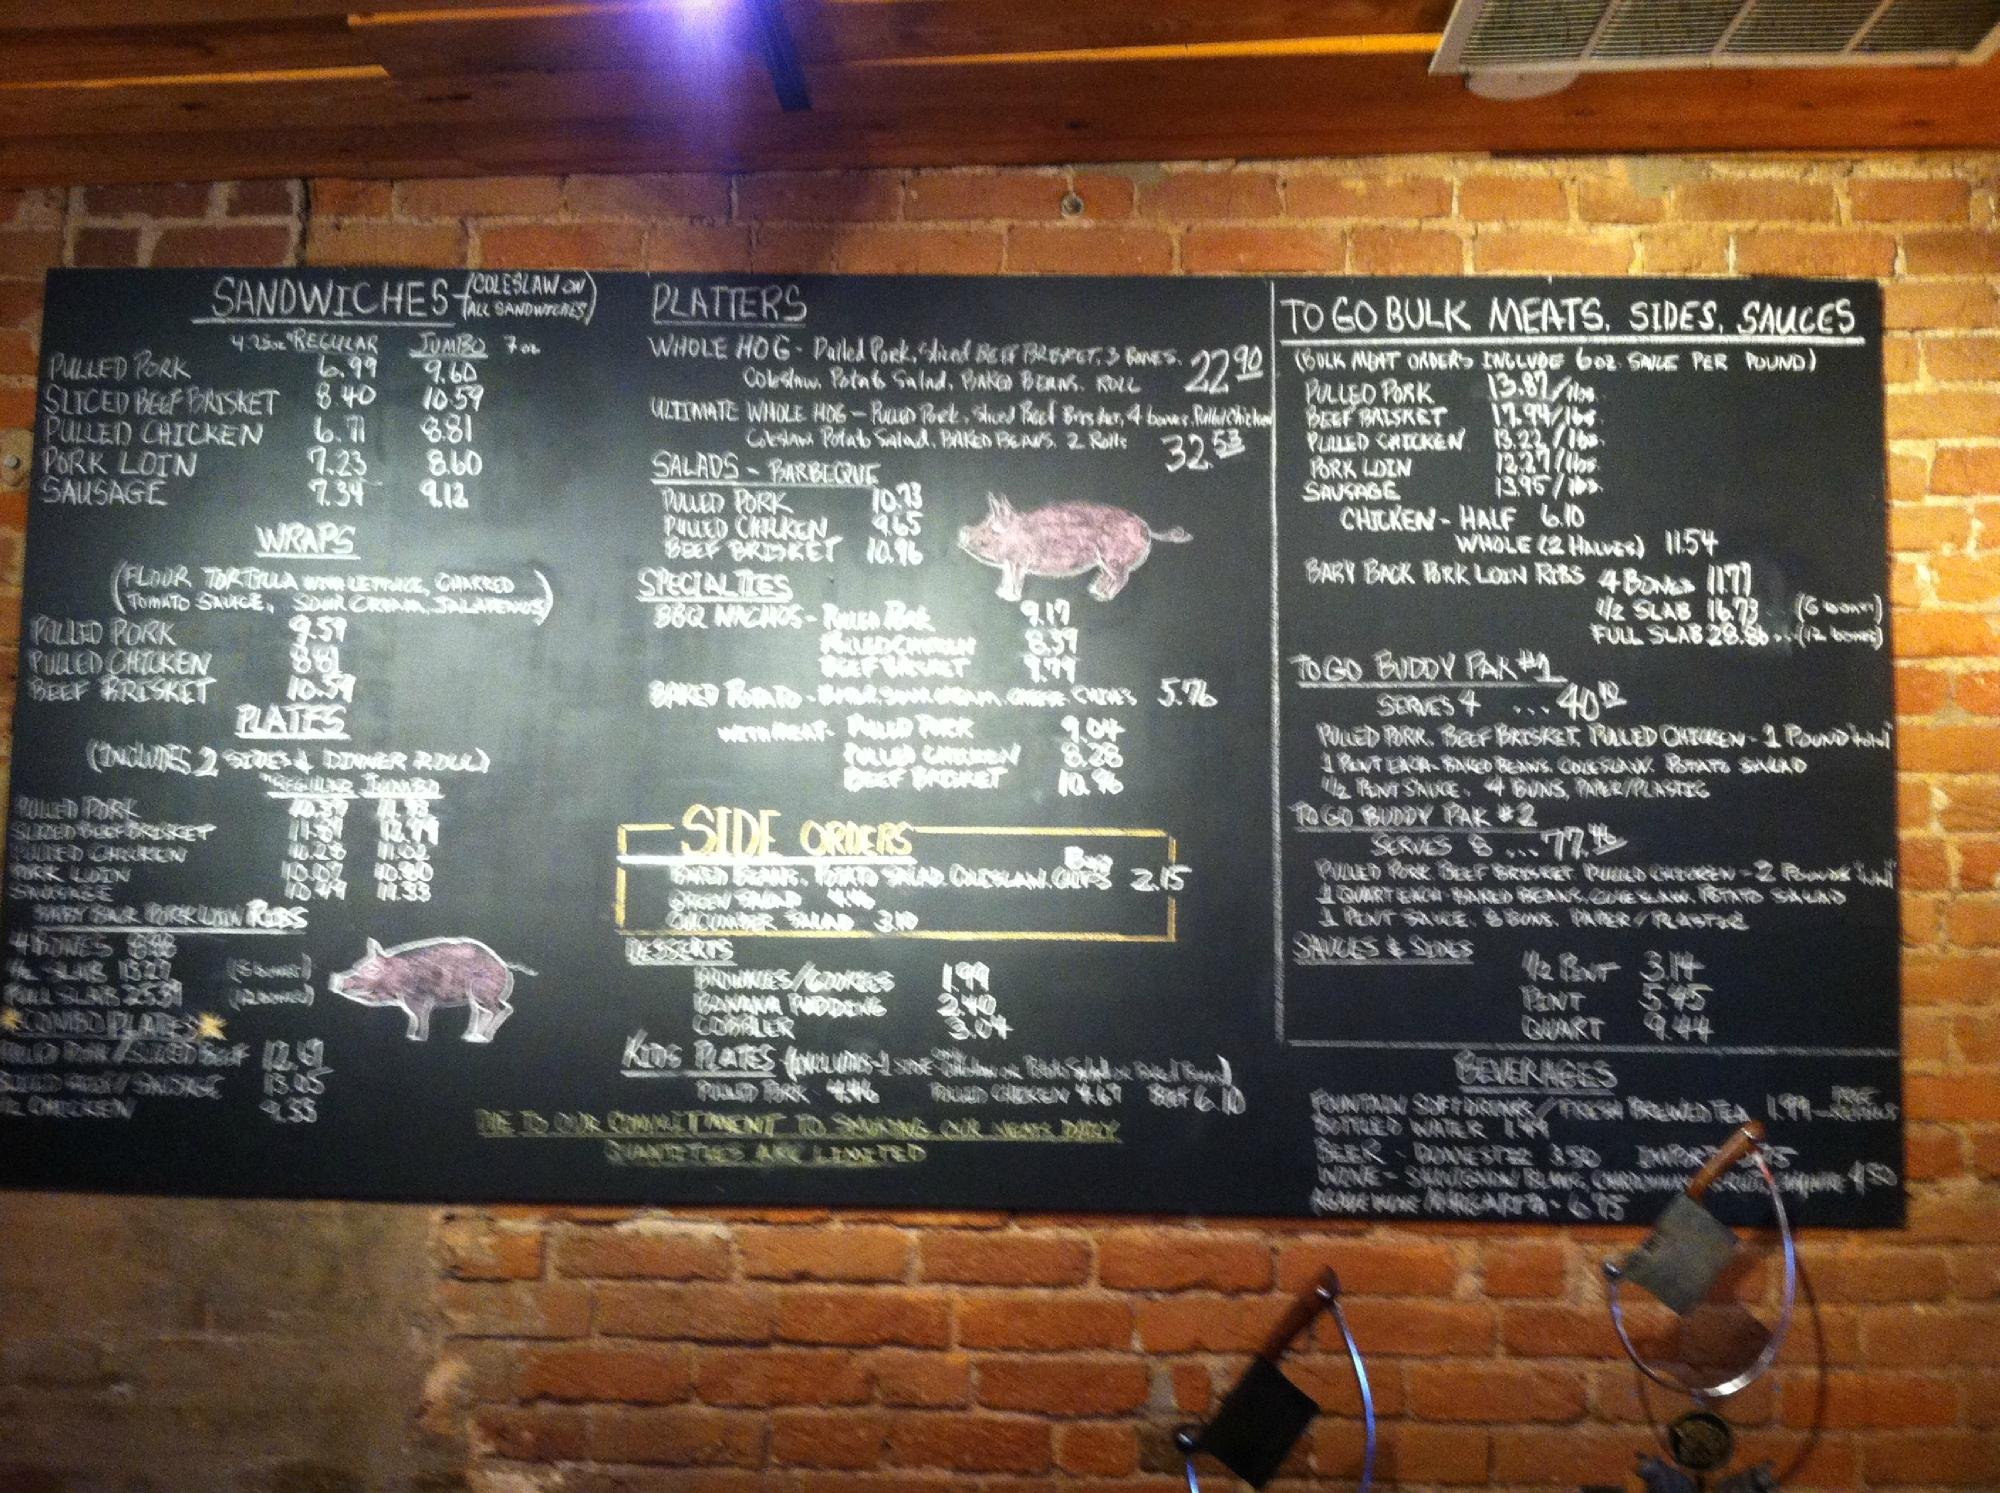 SANDWICHES (COLESLAW ON ALL SANDWICHES)
4.25oz REGULAR JUMBO 7oz
PULLED PORK 6.99 9.60
SLICED BEEF BRISKET 8.40 10.59
PULLED CHICKEN 6.71 8.81
PORK LOIN 7.23 8.60
SAUSAGE 7.34 9.12
WRAPS
(FLOUR TORTILLA WITH LETTUCE, CHARRED
TOMATO SAUCE, SOUR CREAM, JALAPENOS)
PULLED PORK 9.59
PULLED CHICKEN 8.81
BEEF BRISKET 10.59
PLATES
(INCLUDES 2 SIDES & DINNER ROLL)
REGULAR JUMBO
PULLED PORK 10.39
SLICED BEEF BRISKET
PULLED CHICKEN 11.02
PORK LOIN 10.80
SAUSAGE 10.49 11.33
BABY BACK PORK LOIN RIBS
4 BONES
1/2 SLAB (6 bones)
FULL SLAB (12 bones)
COMBO PLATES
PULLED PORK/SLICED BEEF
SAUSAGE 13.05
1/2 CHICKEN 9.33
PLATTERS
WHOLE HOG - Pulled Pork, Sliced BEEF BRISKET, 3 BONES,
Coleslaw, Potato Salad, BAKED BEANS, ROLL 22.90
ULTIMATE WHOLE HOG - Pulled Pork, Sliced Beef Brisket, 4 bones, Pulled Chicken
Coleslaw, Potato Salad, BAKED BEANS, 2 Rolls 32.53
SALADS - BARBEQUE
PULLED PORK 10.73
PULLED CHICKEN 9.65
BEEF BRISKET 10.96
SPECIALTIES
BBQ NACHOS - PULLED PORK 9.17
PULLED CHICKEN 8.39
BEEF BRISKET 9.79
BAKED POTATO - BUTTER, SOUR CREAM, CHEESE, CHIVES 5.76
WITH MEAT - PULLED PORK 9.04
PULLED CHICKEN 8.28
BEEF BRISKET 10.96
SIDE ORDERS
BAKED BEANS, POTATO SALAD, COLESLAW, CHIPS 2.15
GREEN SALAD
CUCUMBER SALAD 3.10
DESSERTS
BROWNIES/COOKIES 1.99
BANANA PUDDING 2.40
COBBLER 3.04
KIDS PLATES - (INCLUDES - 1 SIDE Coleslaw or Potato Salad or Baked Beans)
PULLED PORK 4.46 PULLED CHICKEN 4.67 BEEF 6.10
DUE TO OUR COMMITMENT TO SMOKING OUR MEATS DAILY
QUANTITIES ARE LIMITED
TO GO BULK MEATS, SIDES, SAUCES
(BULK MEAT ORDERS INCLUDE 6oz. SAUCE PER POUND)
PULLED PORK 13.87/lbs.
BEEF BRISKET 17.94/lbs.
PULLED CHICKEN 13.22/lbs.
PORK LOIN 12.27/lbs.
SAUSAGE 13.95/lbs.
CHICKEN - HALF 6.10
WHOLE (2 HALVES) 11.54
BABY BACK PORK LOIN RIBS 4 BONES 11.77
1/2 SLAB 16.73 ... (6 bones)
FULL SLAB 28.86 ... (12 bones)
TO GO BUDDY PAK #1
SERVES 4 ... 40
PULLED PORK, BEEF BRISKET, PULLED CHICKEN - 1 POUND
1 PINT EACH - BAKED BEANS, COLESLAW, POTATO SALAD
1/2 PINT SAUCE, 4 BUNS, PAPER/PLASTIC
TO GO BUDDY PAK #2
SERVES 8 ... 77.46
PULLED PORK, BEEF BRISKET, PULLED CHICKEN - 2 POUNDS
1 QUART EACH - BAKED BEANS, COLESLAW, POTATO SALAD
1 PINT SAUCE, 8 BUNS, PAPER/PLASTIC
SAUCES & SIDES
1/2 PINT 3.14
PINT 5.45
QUART 9.44
BEVERAGES
FOUNTAIN SOFT DRINKS/FRESH BREWED TEA 1.99 - FREE REFILLS
BOTTLED WATER 1.99
BEER - DOMESTIC 3.50 IMPORT
WINE - SAUVIGNON BLANC, CHARDONNAY 4.50
AGAVE WINE MARGARITA - 6.95